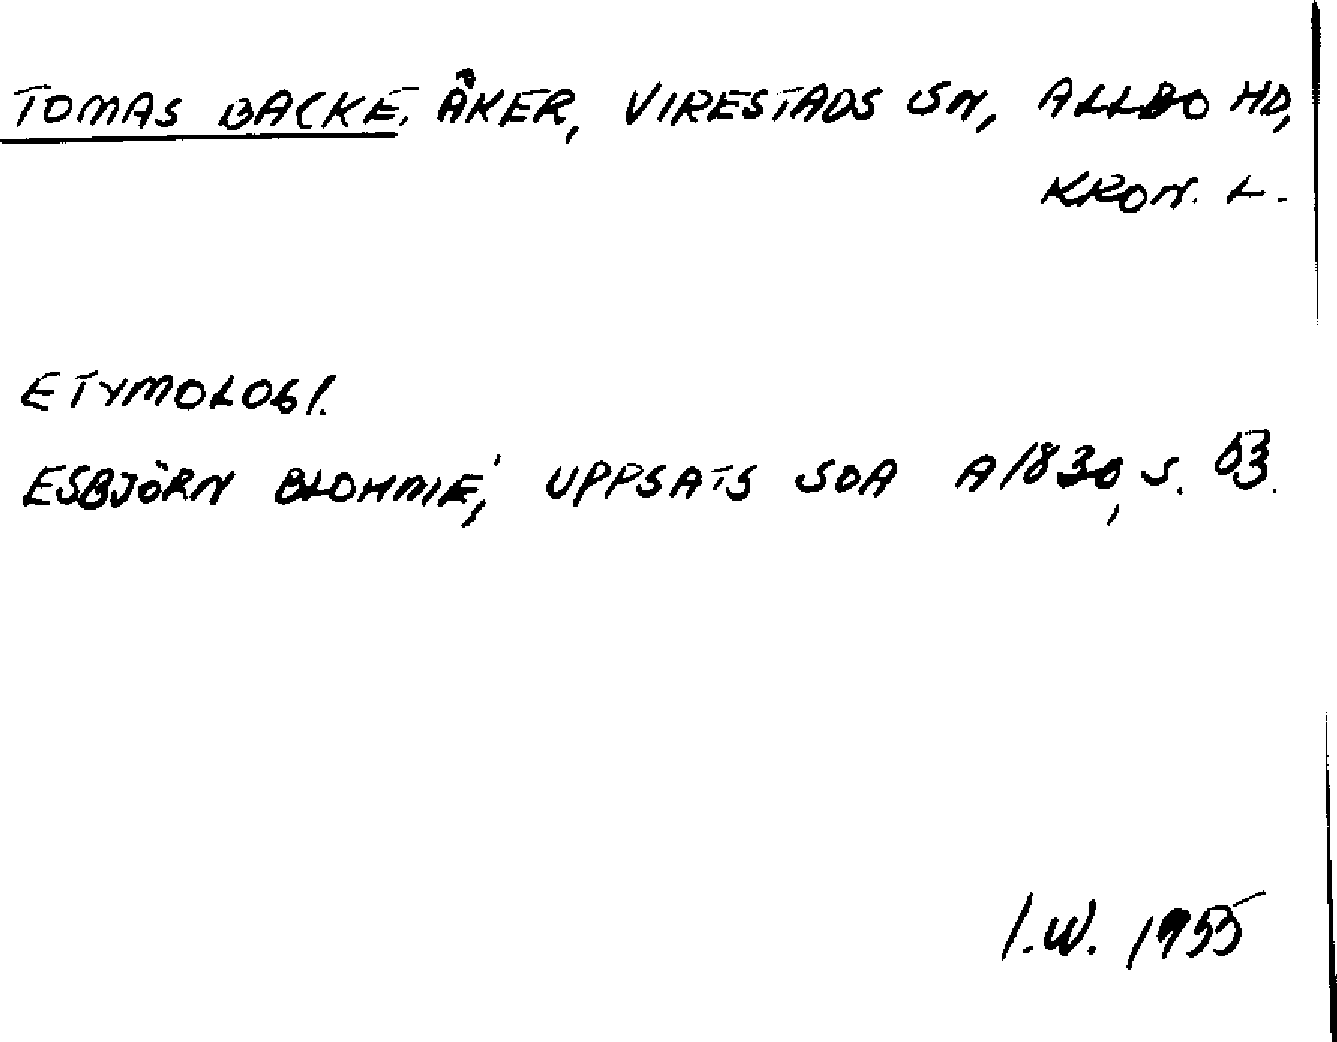 TOMAS BACKE. ÅKER, VIRESTADS SN, ALLBO HD,
KRON. L.
ETYMOLOGI.
ESBJÖRN BLOHMÉ, UPPSATS SOA A1830, S. 53.
I.W. 1955